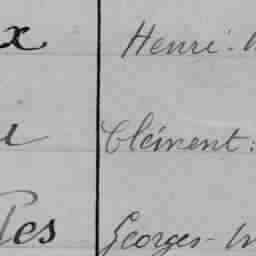 x Henri-
Clément:
les Georges-